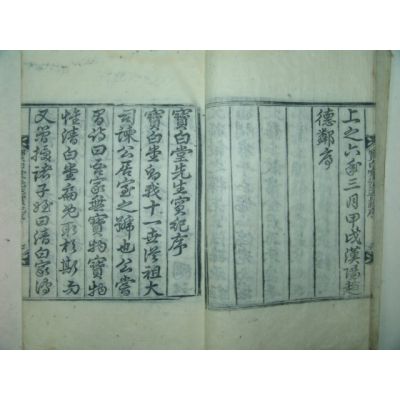 上之六年三月甲戌漢陽趙
德鄰序
寶白堂先生實紀序
寶白堂我十一世從祖大
司諫公居室之號也公嘗
有詩曰吾家無寶物寶物
惟清白堂扁也取於斯而
又嘗授諸子姪曰清白家傳